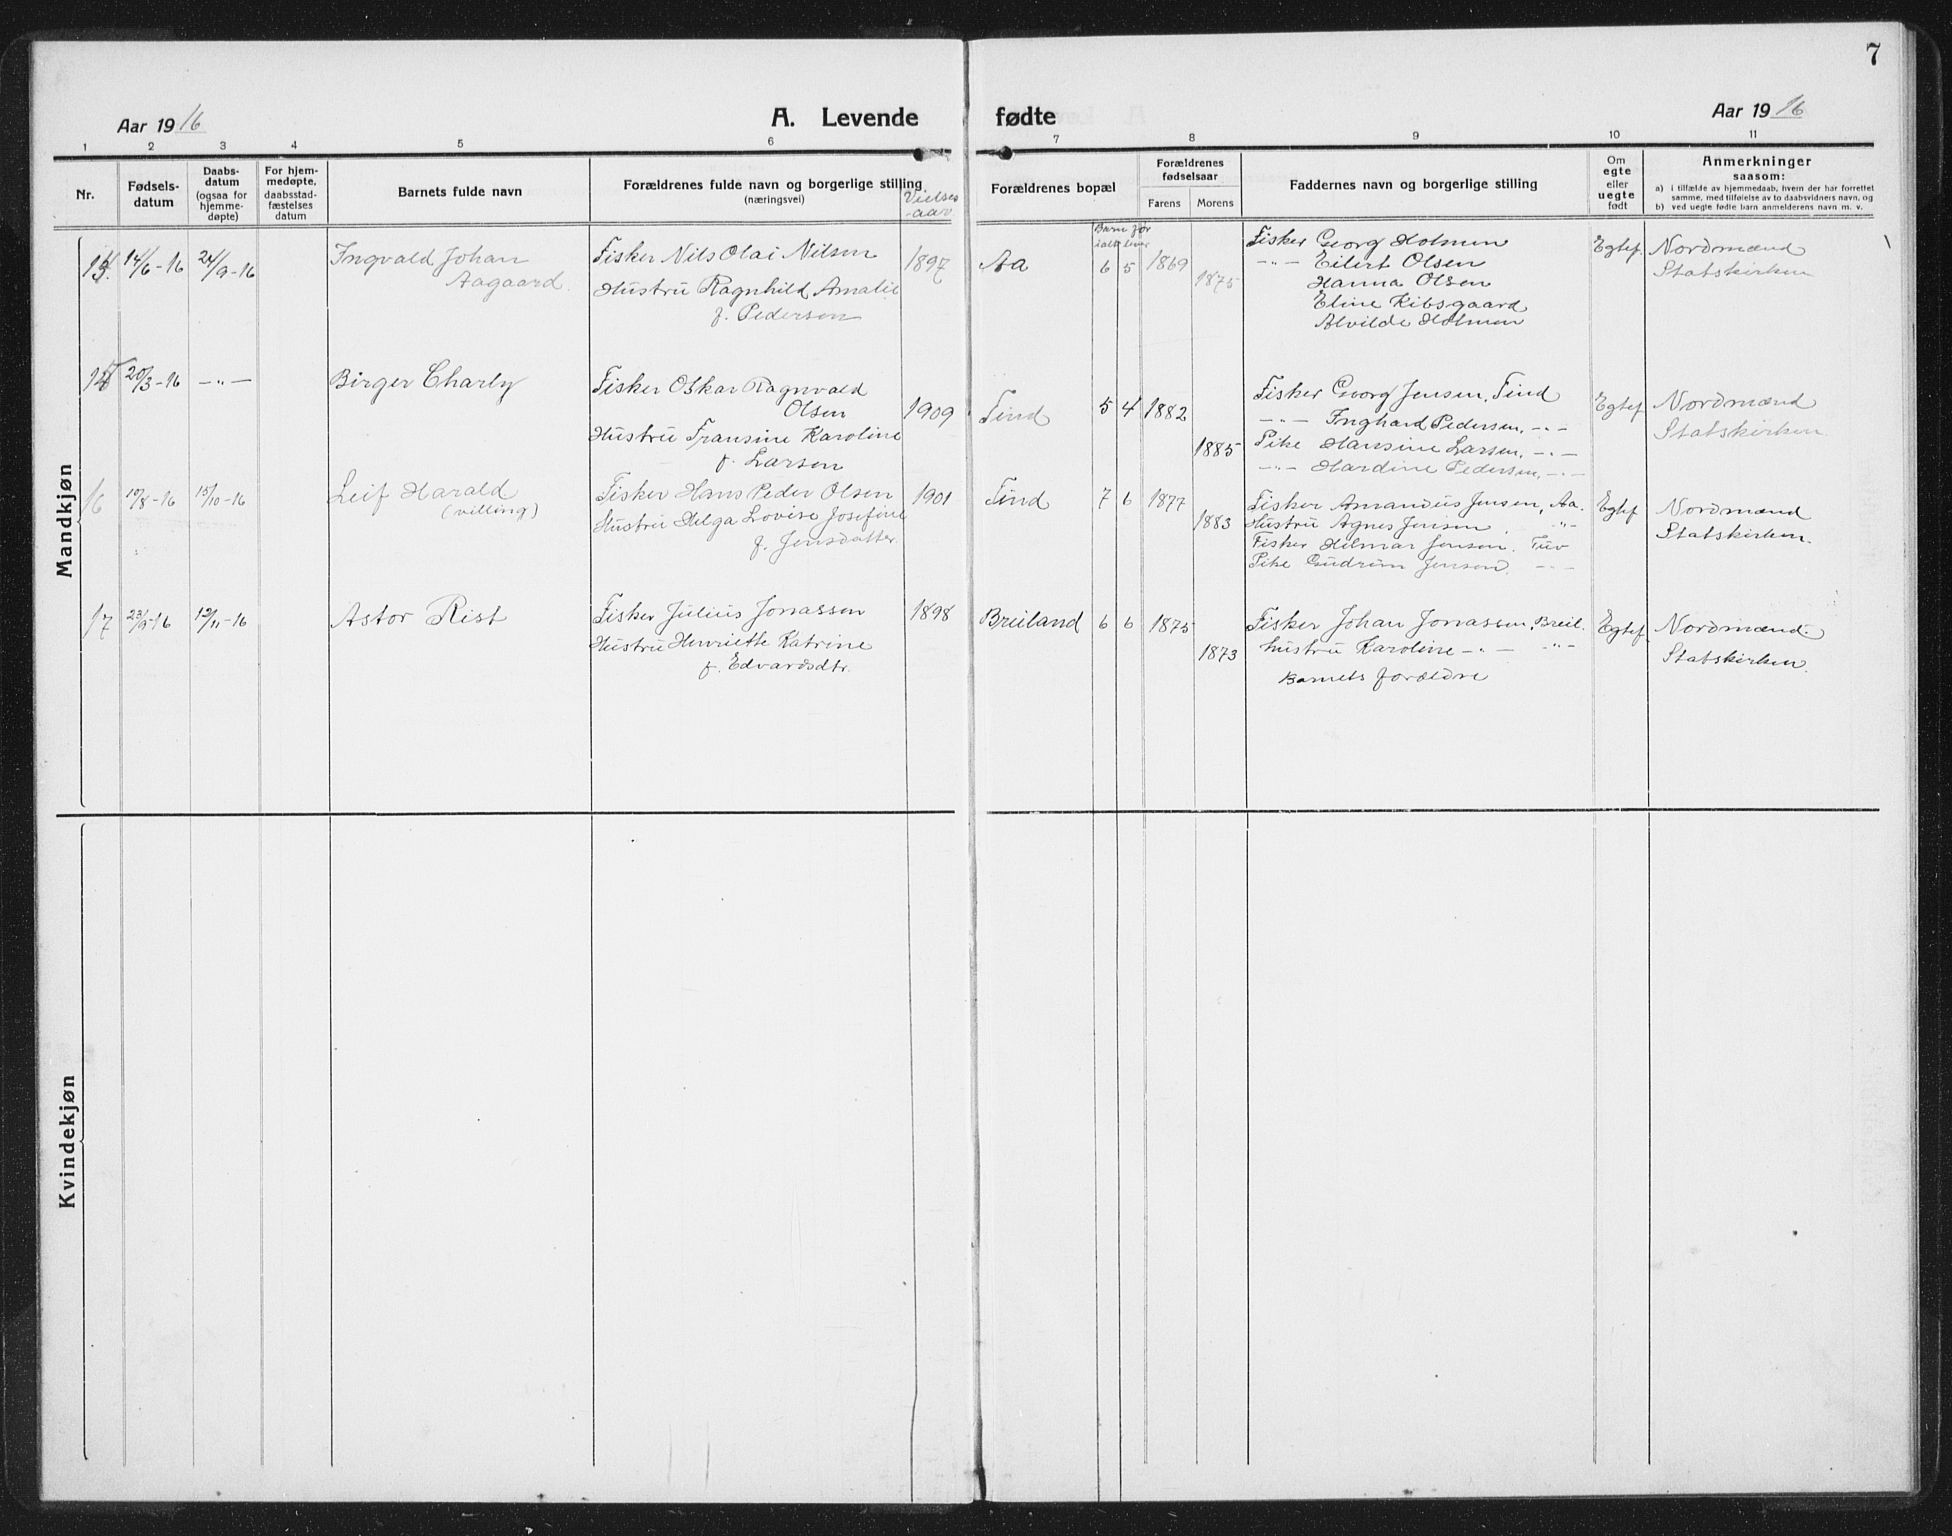 7
Aar 1916
A. Levende
fødte
Aar 1916
1
2
3
4
5
6
7
8
9
10
11
Nr.
Fødsels-
datum
Daabs-
datum
(ogsaa for
hjemme-
døpte)
For hjem-
medøpte,
daabsstad-
fæstelses
datum
Barnets fulde navn
Forældrenes fulde navn og borgerlige stilling
(næringsvei)
Vielses
-aar
Forældrenes bopæl
Barn før
ialt lever
Forældrenes
fødselsaar
Farens
Morens
Faddernes navn og borgerlige stilling
Om
egte
eller
uegte
født
Anmerkninger
saasom:
a) i tilfælde av hjemmedaab, hvem der har forrettet
samme, med tilføielse av to daabsvidners navn, og
b) ved uegte fødte barn anmelderens navn m. v.
Mandkjøn
14/6-16
24/9-16
Ingvald Johan
Aagaard.
Fisker Nils Olai Nilsen
Hustru Ragnhild Amalie
f. Pedersen
1897
Aa
6 5
1869
1875
Fisker Georg Holmen
-"- Eilert Olsen
Hanna Olsen
Eline Kibsgaard
Alvilde Holmen
Egtef.
Nordmænd
Statskirken
20/3-16
-"-
Birger Charly
Fisker Oskar Ragnvald
Olsen
Hustru Fransine Karoline
f. Larsen
1909
Tind
5 4
1882
1885
Fisker Georg Jensen, Tind
-"- Inghard Pedersen, -"-
Pike Hansine Larsen, -"-
-"- Hardine Pedersen, -"-
Egtef
Nordmænd
Statskirken.
16
10/8-16
15/10-16
Leif Harald
(tvilling)
Fisker Hans Peder Olsen
Hustru Helga Lovise Josefine
f. Jensdatter.
1901
Tind
7 6
1877
1883
Fisker Amandus Jensen, Aa.
Hustru Agnes Jensen -"-
Fisker Hilmar Jensen. Tuv
Pike Gudrun Jensen. -"-
Egtef
Nordmænd
Statskirken.
17
23/9-16
12/11-16
Astor Rist
Fisker Julius Jonassen
Hustru Henriette Katrine
f. Edvardsdtr.
1898
Breiland
6 6
1875
1873
Fisker Johan Jonassen, Breil.
Hustru Karoline -"- -"-
Barnets forældre
Egtef
Nordmænd.
Statskirken.
Kvindekjøn